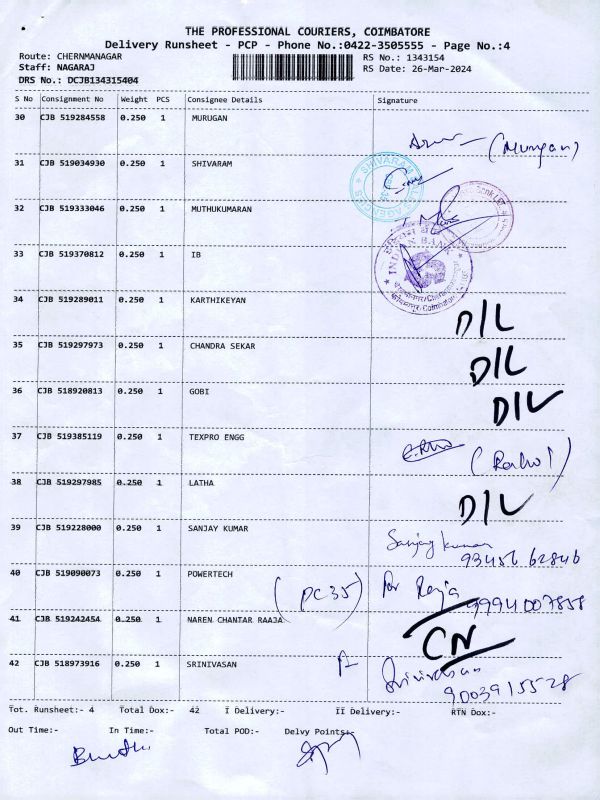 THE PROFESSIONAL COURIERS, COIMBATORE
Delivery Runsheet - PCP - Phone No.:0422-3505555 - Page No.:4
Route: CHERNMANAGAR
Staff: NAGARAJ
DRS No.: DCJB134315404
RS No.: 1343154
RS Date: 26-Mar-2024
S No Consignment No Weight PCS Consignee Details Signature
30 CJB 519284558 0.250 1 MURUGAN
(Murugan)
31 CJB 519034930 0.250 1 SHIVARAM
SHIVARAM AGENCIES
32 CJB 519333046 0.250 1 MUTHUKUMARAN
33 CJB 519370812 0.250 1 IB
INDIAN BANK
34 CJB 519289011 0.250 1 KARTHIKEYAN
D/L
35 CJB 519297973 0.250 1 CHANDRA SEKAR
D/L
36 CJB 518920813 0.250 1 GOBI
D/L
37 CJB 519385119 0.250 1 TEXPRO ENGG
(Rahul)
38 CJB 519297985 0.250 1 LATHA
D/L
39 CJB 519228000 0.250 1 SANJAY KUMAR
Sanjay kumar
93456 62846
40 CJB 519090073 0.250 1 POWERTECH
(PC35) for Raja
9994007858
41 CJB 519242454 0.250 1 NAREN CHANTAR RAAJA
CN
42 CJB 518973916 0.250 1 SRINIVASAN
Srinivasan
9003915528
Tot. Runsheet:- 4 Total Dox:- 42 I Delivery:- II Delivery:- RTN Dox:-
Out Time:- In Time:- Total POD:- Delvy Points:-